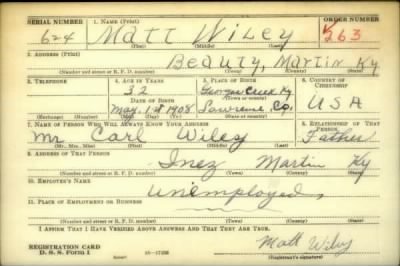 SERIAL NUMBER 1. NAME (Print) ORDER NUMBER
624 Matt Wiley 263
(First) (Middle) (Last)
2. ADDRESS (Print)
Beauty, Martin Ky
(Number and street or R. F. D. number) (Town) (County) (State)
3. TELEPHONE 4. AGE IN YEARS 5. PLACE OF BIRTH 6. COUNTRY OF CITIZENSHIP
32 Georges Creek Ky
DATE OF BIRTH (Town or county)
May 1st 1908 Lawrence Co. U S A
(Exchange) (Number) (Mo.) (Day) (Yr.) (State or country)
7. NAME OF PERSON WHO WILL ALWAYS KNOW YOUR ADDRESS 8. RELATIONSHIP OF THAT PERSON
Mr Carl Wiley Father
(Mr., Mrs., Miss) (First) (Middle) (Last)
9. ADDRESS OF THAT PERSON
Inez Martin Ky
(Number and street or R. F. D. number) (Town) (County) (State)
10. EMPLOYER'S NAME
Unemployed,
11. PLACE OF EMPLOYMENT OR BUSINESS
(Number and street or R. F. D. number) (Town) (County) (State)
I AFFIRM THAT I HAVE VERIFIED ABOVE ANSWERS AND THAT THEY ARE TRUE.
REGISTRATION CARD Matt Wiley
D. S. S. Form 1 (Registrant's signature)